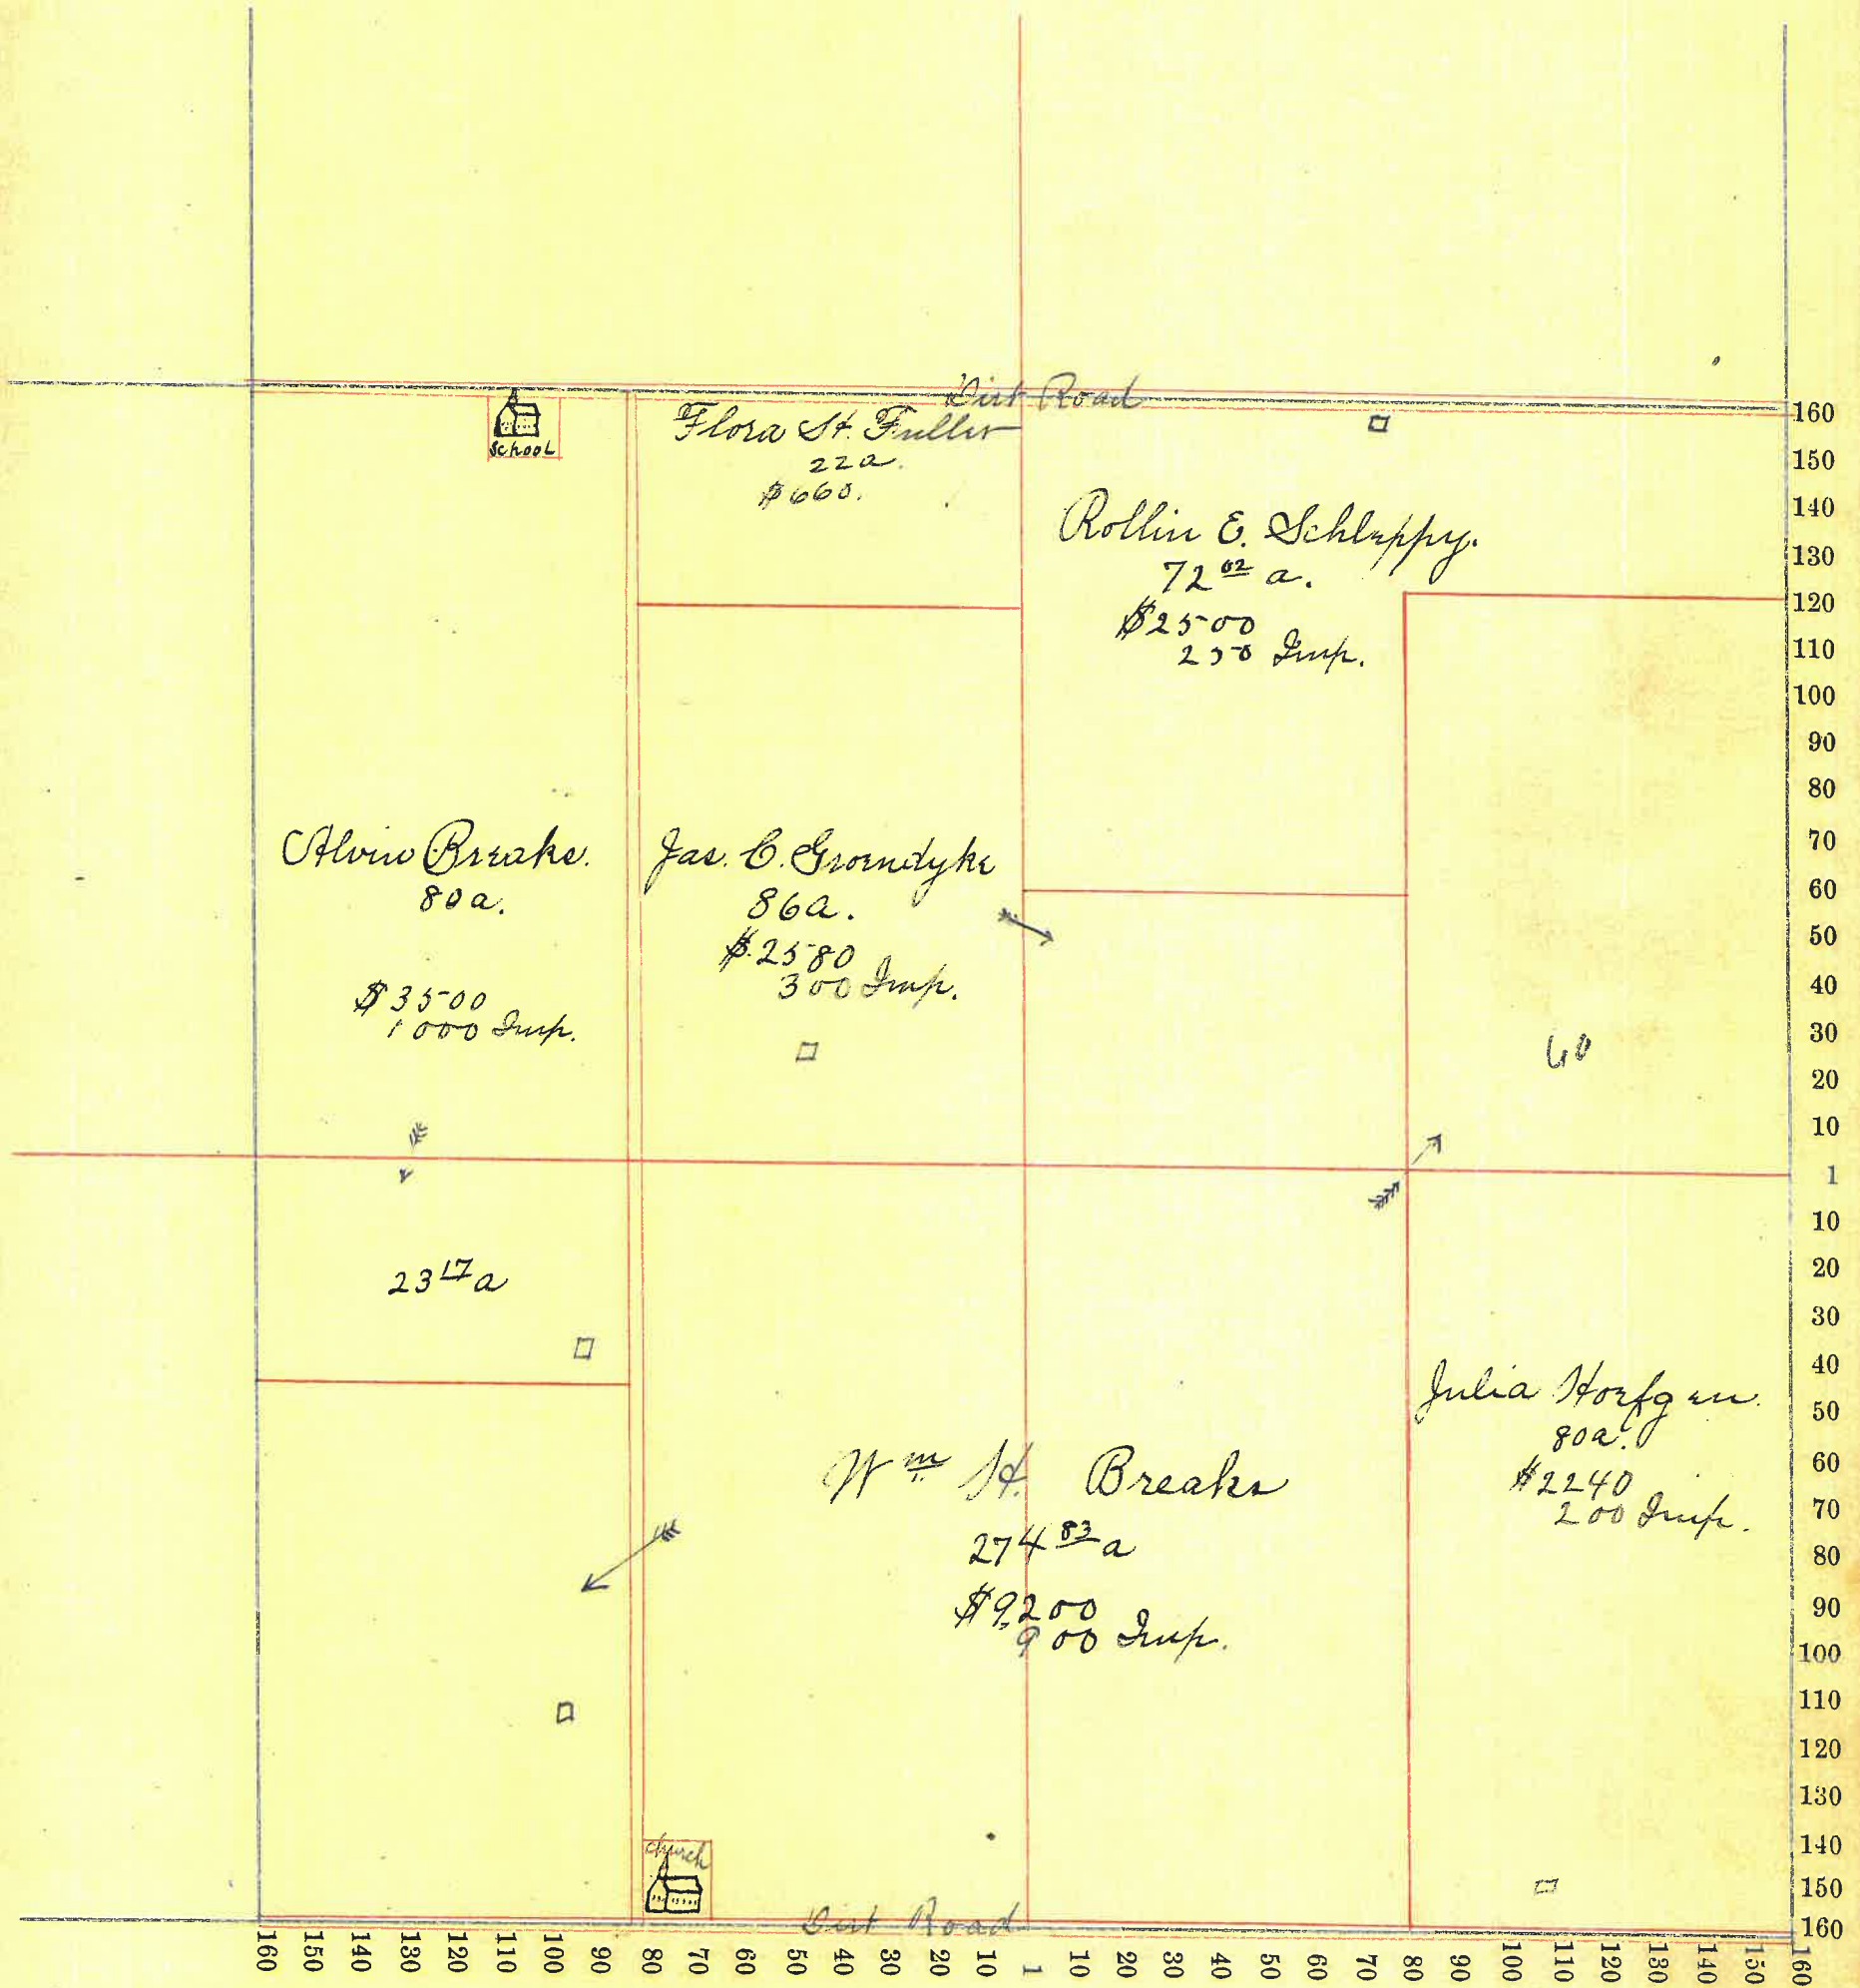 Dirt Road
School
Flora H. Fuller
22a.
$660.
Rollin E. Schleppy.
72 02 a.
$2500
250 Imp.
Alvin Breaks.
80a.
$3500
1000 Imp.
Jas. C. Groendyke
86a.
$2580
300 Imp.
60
23 17 a
Wm H. Breaks
274 83 a
$9200
900 Imp.
Julia Hoefgen.
80a.
$2240
200 Imp.
church
Dirt Road
160
150
140
130
120
110
100
90
80
70
60
50
40
30
20
10
1
10
20
30
40
50
60
70
80
90
100
110
120
130
140
150
160
160 150 140 130 120 110 100 90 80 70 60 50 40 30 20 10 1 10 20 30 40 50 60 70 80 90 100 110 120 130 140 150 160